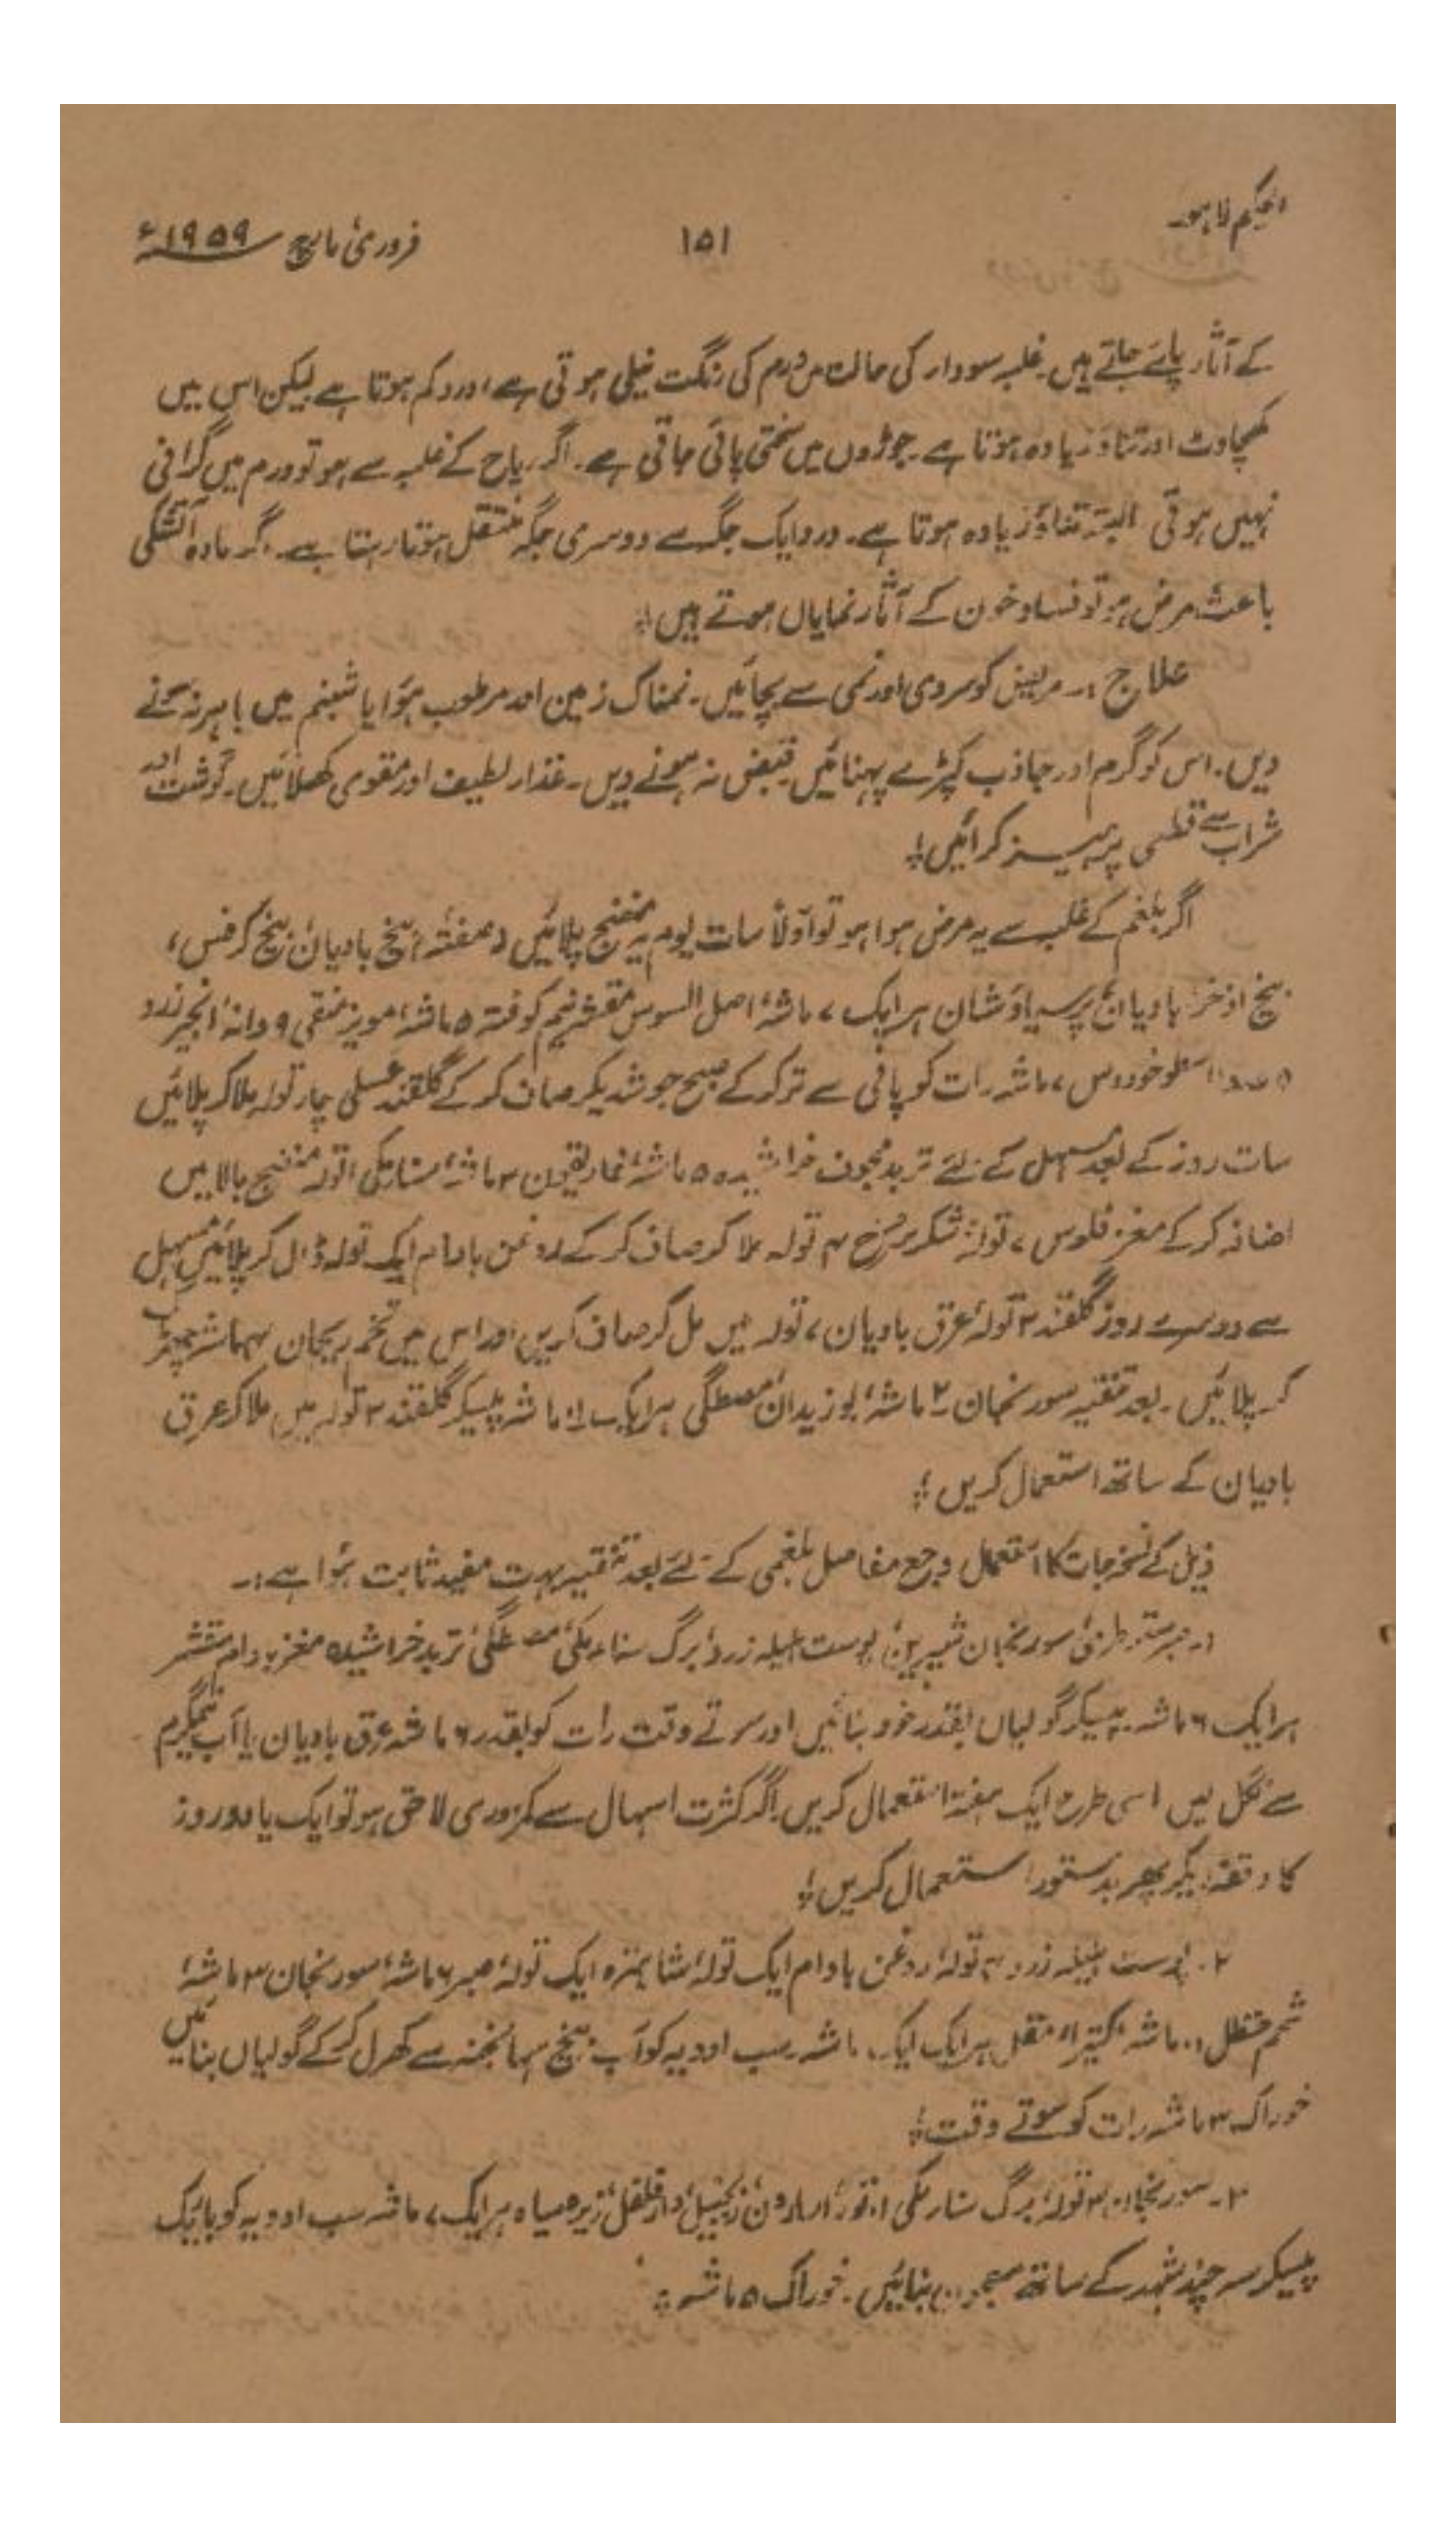 الحکیم لاہور
۱۵۱
فروری مارچ ۱۹۵۹ء
کے آثار پائے جاتے ہیں۔ غلبہ سودار کی حالت میں ورم کی رنگت نیلی ہوتی ہے اور درد کم ہوتا ہے لیکن اس میں
کھچاوٹ اور تناؤ زیادہ ہوتا ہے۔ جوڑوں میں سختی پائی جاتی ہے۔ اگر ریاح کے غلبہ سے ہو تو ورم میں گرانی
نہیں ہوتی البتہ تناؤ زیادہ ہوتا ہے۔ درد ایک جگہ سے دوسری جگہ منتقل ہوتا رہتا ہے۔ اگر مادہ آتشکی
باعث مرض ہو تو فساد خون کے آثار نمایاں ہوتے ہیں؛
علاج :۔ مریض کو سردی اور نمی سے بچائیں۔ نمناک زمین اور مرطوب ہوا یا شبنم میں باہر نہ سونے
دیں۔ اس کو گرم اور جاذب کپڑے پہنائیں۔ قبض نہ ہونے دیں۔ غذار لطیف اور مقوی کھلائیں۔ گوشت اور
شراب سے قطعی پرہیز کرائیں؛
اگر بلغم کے غلبہ سے یہ مرض ہوا ہو تو اولاً سات یوم یہ منضج پلائیں بیخ بادیان، بیخ کرفس،
بیخ اذخر، بادیان، پرسیاؤشان ہر ایک ۷ ماشہ، اصل السوس مقشر نیم کوفتہ ۵ ماشہ، مویز منقی ۹ دانہ، انجیر زرد
۵ عدد، اسطوخودوس ۷ ماشہ رات کو پانی سے تر کر کے صبح جوش دیکر صاف کر کے گلقند عسلی چار تولہ ملا کر پلائیں
سات روز کے بعد مسہل کے لئے تربد مجوف خراشیدہ ۵ ماشہ، غاریقون ۳ ماشہ، سنار مکی ۱ تولہ منضج بالا میں
اضافہ کر کے مغز فلوس ۷ تولہ، شکر سرخ ۴ تولہ ملا کر صاف کر کے روغن بادام ایک تولہ ڈال کر پلائیں۔ مسہل
سے دوسرے روز گلقند ۲ تولہ، عرق بادیان ۷ تولہ میں مل کر صاف کریں اور اس میں تخم ریحان ماشہ چھڑک
کر پلائیں۔ بعد تنقیہ سورنجان ۲ ماشہ، بوزیدان، مصطگی ہر ایک ۱ ماشہ پیسکر گلقند ۲ تولہ میں ملا کر عرق
بادیان کے ساتھ استعمال کریں؛
ذیل کے نسخہ جات کا استعمال وجع مفاصل بلغمی کے لئے بعد تنقیہ بہت مفید ثابت ہوا ہے:۔
۱۔ صبر سقوطری، سورنجان شیریں، پوست ہلیلہ زرد، برگ سناء مکی، مصطگی، تربد خراشیدہ مغز بادام مقشر
ہر ایک ۶ ماشہ پیسکر گولیاں بقدر نخود بنائیں اور سوتے وقت رات کو بقدر ۶ ماشہ عرق بادیان یا آب نیمگرم
سے نگل لیں اسی طرح ایک ہفتہ استعمال کریں۔ اگر کثرت اسہال سے کمزوری لاحق ہو تو ایک یا دو روز
کا وقفہ دیکر پھر بدستور استعمال کریں؛
۲۔ پوست ہلیلہ زرد تولہ، روغن بادام ایک تولہ، شاہترہ ایک تولہ، صبر ۶ ماشہ، سورنجان ۳ ماشہ،
شحم حنظل ماشہ، کتیرا، مقل ہر ایک ایک ماشہ سب ادویہ کو آب بیخ سہانجنہ سے کھرل کر کے گولیاں بنائیں
خوراک ۳ ماشہ رات کو سوتے وقت؛
۳۔ سورنجان ۳ تولہ، برگ سنار مکی ۱ تولہ، اسارون، زنجبیل، دارفلفل، زیرہ سیاہ ہر ایک ۷ ماشہ سب ادویہ کو باریک
پیسکر سہ چند شہد کے ساتھ معجون بنائیں۔ خوراک ۵ ماشہ؛